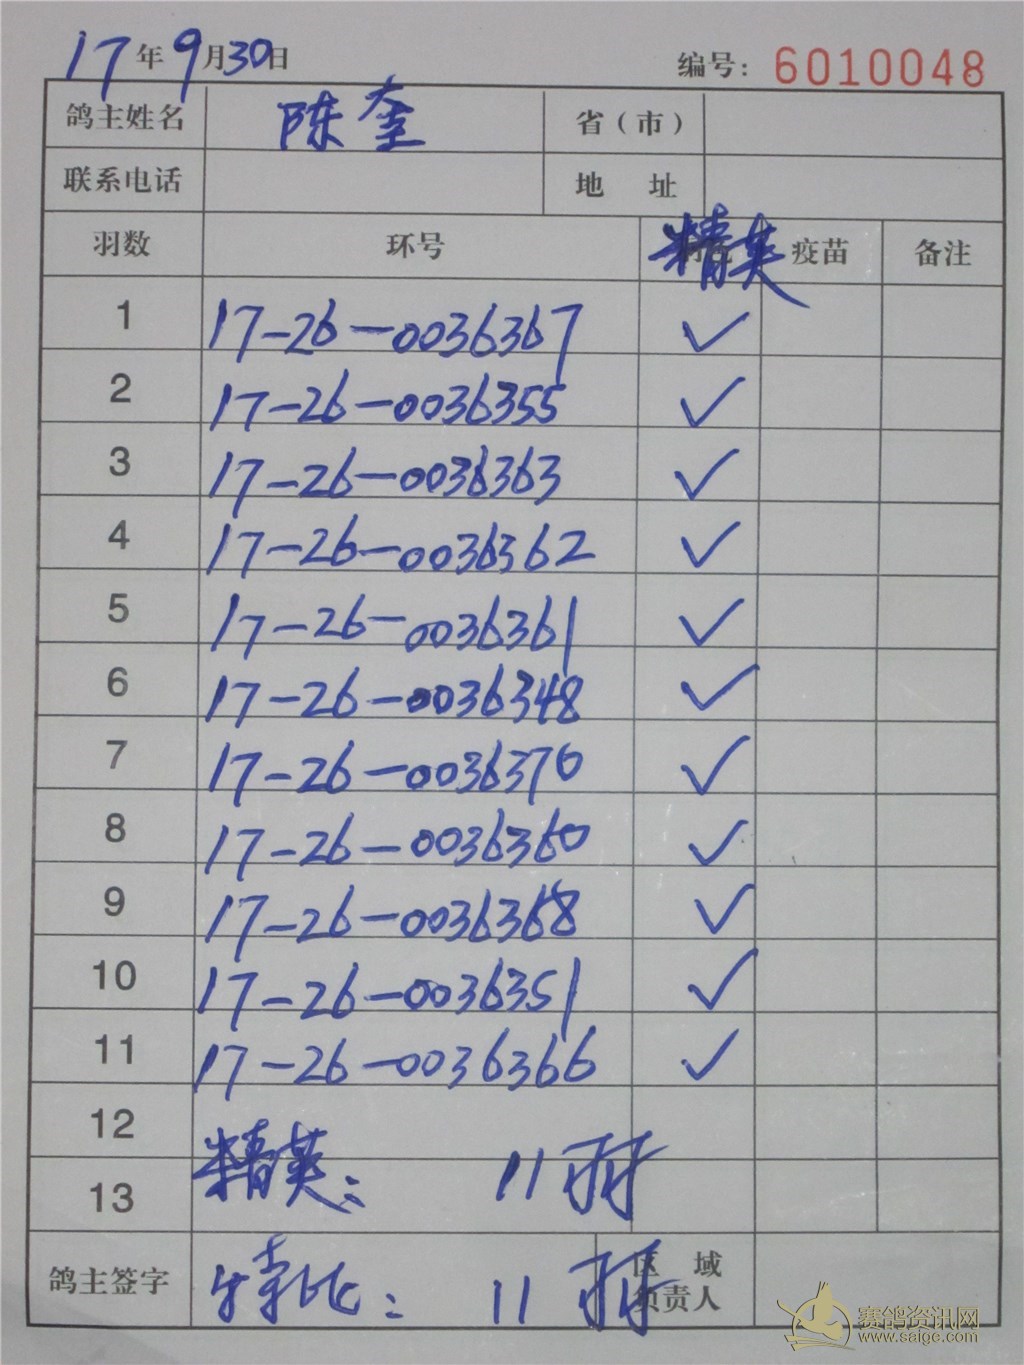 17年9月30日 编号: 6010048
鸽主姓名 陈奎 省（市）
联系电话 地 址
羽数 环号 精英 疫苗 备注
1 17-26-0036367 ✓
2 17-26-0036355 ✓
3 17-26-0036363 ✓
4 17-26-0036362 ✓
5 17-26-0036361 ✓
6 17-26-0036348 ✓
7 17-26-0036370 ✓
8 17-26-0036360 ✓
9 17-26-0036368 ✓
10 17-26-0036351 ✓
11 17-26-0036366 ✓
12
精英: 11羽
13
鸽主签字 特比: 11羽 区 域
负责人
赛鸽资讯网
www.saige.com